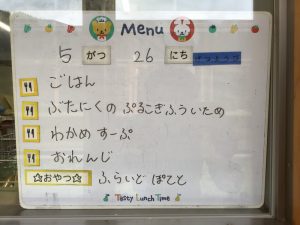 Menu
5 がつ 26 にち
ごはん
ぶたにくの ぷるこぎふういため
わかめ すーぷ
おれんじ
☆おやつ☆ ふらいど ぽてと
Tasty Lunch Time